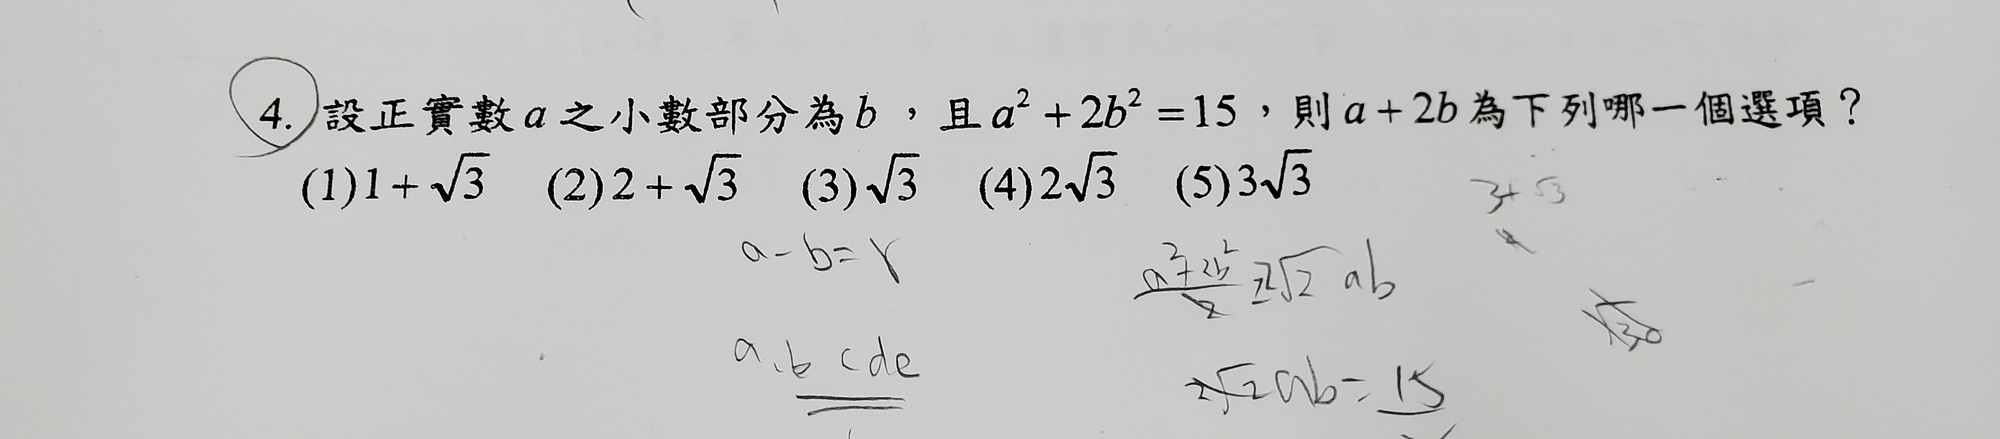 4. 設正實數a之小數部分為b，且a²+2b²=15，則a+2b為下列哪一個選項？
(1)1+√3 (2)2+√3 (3)√3 (4)2√3 (5)3√3
3+√3
a-b=
a²+2b²/2 ≥√2 ab
√30
a.b cde
2√2ab=15